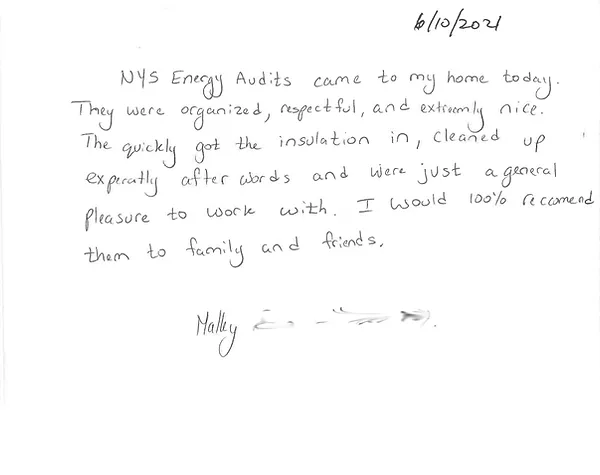 6/10/2021
NYS Energy Audits came to my home today.
They were organized, respectful, and extreemly nice.
The quickly got the insulation in, cleaned up
experatly after words and were just a general
pleasure to work with. I would 100% reccomend
them to family and friends.
Malky